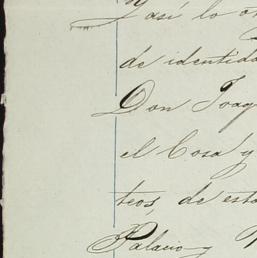 y así lo o
de identida
Don Joaq
el Cosa y
teos, de esta
Palacio y